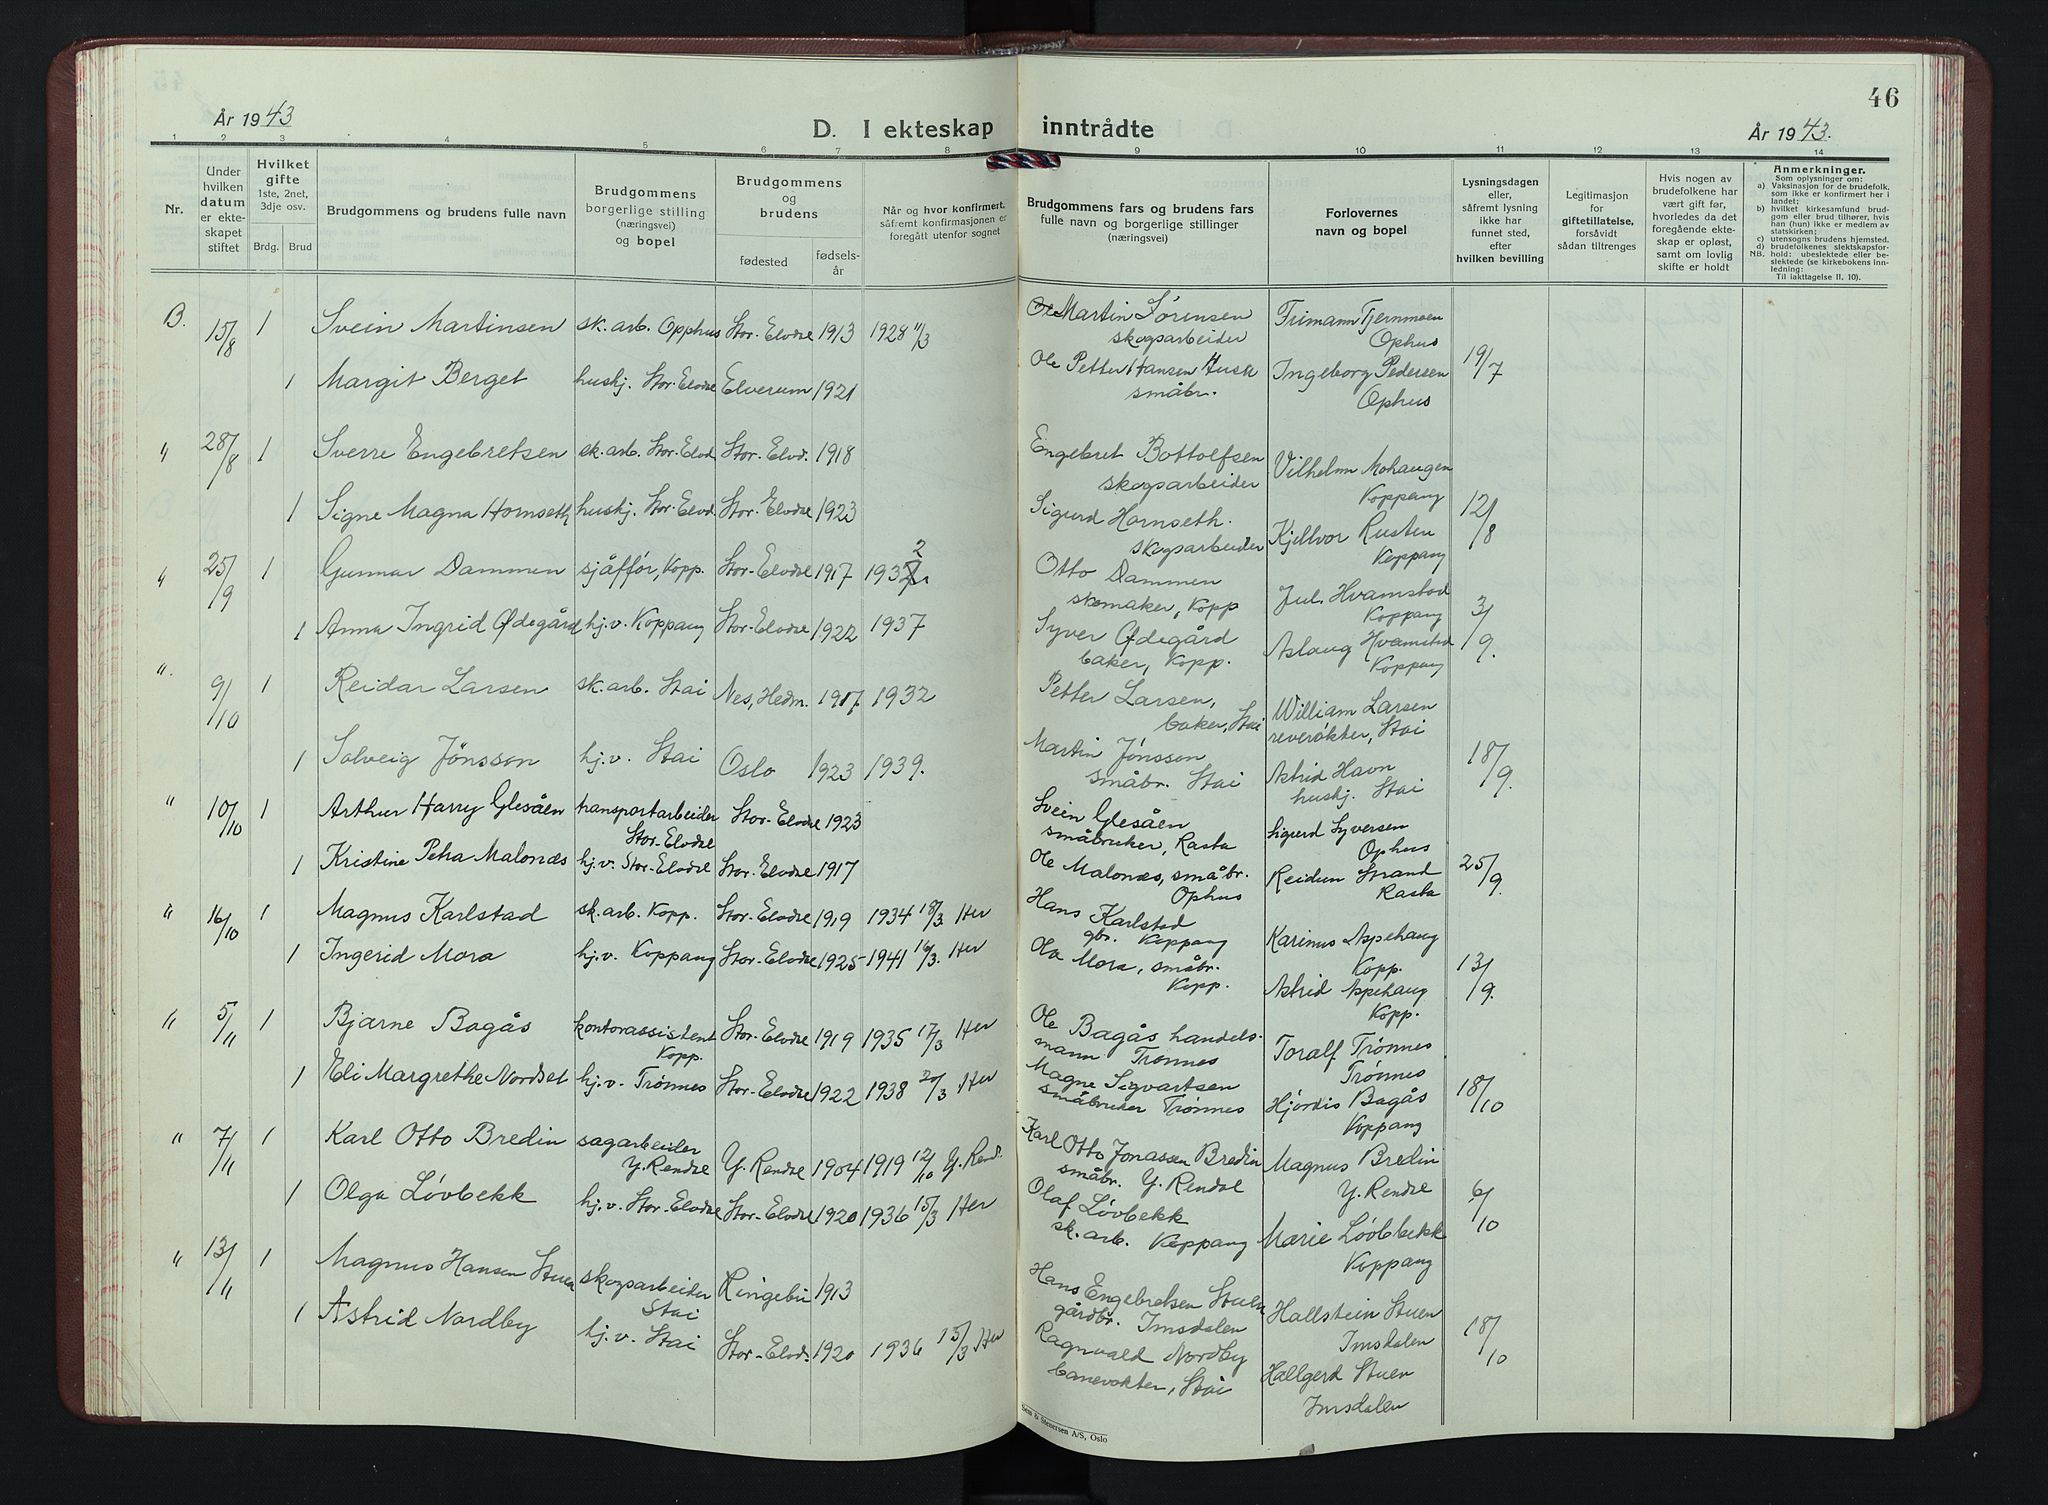 År 1943
D. I ekteskap inntrådte
År 1943.
46
1 2 3 4 5 6 7 8 9 10 11 12 13 14
Nr.
Under hvilken datum er ekteskapet stiftet
Hvilket gifte
1ste, 2net, 3dje osv.
Brdg. Brud
Brudgommens og brudens fulle navn
Brudgommens borgerlige stilling (næringsvei) og bopel
Brudgommens og brudens
fødested
fødselsår
Når og hvor konfirmert, såfremt konfirmasjonen er foregått utenfor sognet
Brudgommens fars og brudens fars fulle navn og borgerlige stillinger (næringsvei)
Forlovernes navn og bopel
Lysningsdagen eller, såfremt lysning ikke har funnet sted, efter hvilken bevilling
Legitimasjon for giftetillatelse, forsåvidt sådan tiltrenges
Hvis nogen av brudefolkene har vært gift før, hvorledes da det foregående ekteskap er opløst, samt om lovlig skifte er holdt
Anmerkninger.
Som oplysninger om:
a) Vaksinasjon for de brudefolk, som ikke er konfirmert her i landet;
b) hvilket kirkesamfund brudgom eller brud tilhører, hvis han (hun) ikke er medlem av statskirken;
c) utensogns brudens hjemsted.
d) brudefolkenes slektskapsforhold: ubeslektede eller beslektede (se kirkebokens innledning:
NB.
Til iakttagelse II, 10).
B. 15/8 1 Svein Martinsen sk. arb. Opphus Stor-Elvdal 1913 1928 11/3 Martin Sørensen skogsarbeider Frimann Tjernmoen Ophus
1 Margit Berget huskj. Stor-Elvdal Elverum 1921 Ole Petter Hansen Husa småbr. Ingeborg Pedersen Ophus 19/7
" 28/8 1 Sverre Engebretsen sk. arb. Stor-Elvd. Stor-Elvd. 1918 Engebret Bottolfsen skogsarbeider Vilhelm Mohaugen Koppang
1 Signe Magna Hornseth huskj. Stor-Elvd. Stor-Elvdal 1923 Sigurd Hornseth. skogsarbeider Kjellvor Rusten Koppang 12/8
" 25/9 1 Gunnar Dammen sjåffør, Kopp. Stor-Elvdal 1917 1932 Otto Dammen skomaker, Kopp Jul. Hvamstad Koppang
1 Anna Ingrid Ødegård hj.v. Koppang Stor-Elvdal 1922 1937 Syver Ødegård baker, Kopp. Aslaug Hvamstad Koppang 3/9.
" 9/10 1 Reidar Larsen sk. arb. Stai Nes, Hedm. 1917 1932 Petter Larsen, baker, Stai William Larsen reverøkter, Stai
1 Solveig Jönsson hj.v. Stai Oslo 1923 1939. Martin Jönsson småbr. Stai Astrid Havn huskj. Stai 18/9.
" 10/10 1 Arthur Harry Glesåen transportarbeider Stor-Elvdal Stor-Elvdal 1923 Svein Glesåen småbruker, Rasta Sigurd Syversen Ophus
1 Kristine Petra Malonæs hj.v. Stor-Elvdal Stor-Elvdal 1917 Ole Malonæs, småbr. Ophus Reidun Strand Rasta 25/9.
" 16/10 1 Magnus Karlstad sk. arb. Kopp. Stor-Elvdal 1919 1934 18/3 Her Hans Karlstad gbr. Koppang Karinus Appehaug Kopp.
1 Ingerid Mora hj.v. Koppang Stor-Elvdal 1925 1941 16/3. Her Ola Mora, småbr. Kopp. Astrid Appehaug Kopp. 13/9.
" 5/11 1 Bjarne Bagås kontorassistent Kopp. Stor-Elvdal 1919 1935 17/3 Her Ole Bagås handelsmann Trønnes Toralf Trønnes Trønnes
1 Eli Margrethe Nordset hj.v. Trønnes Stor-Elvdal 1922 1938 20/3 Her Magne Sigvartsen småbruker Trønnes Hjørdis Bagås Koppang 18/10
" 7/11 1 Karl Otto Bredin sagarbeider Y. Rendal Y. Rendal 1904 1919 12/10 Y. Rend. Karl Otto Jonassen Bredin småbr. Y. Rendal Magnus Bredin Y. Rendal
1 Olga Løvbekk hj.v. Stor-Elvdal Stor-Elvdal 1920 1936 15/3 Her Olaf Løvbekk sk. arb. Koppang Marie Løvbekk Koppang 6/10
" 13/11 1 Magnus Hansen Stuen skogsarbeider Stai Ringebu 1913 Hans Engebretsen Stuen gårdbr. Imsdalen Hallstein Stuen Imsdalen
1 Astrid Nordby hj.v. Stai Stor-Elvd. 1920 1936 15/3 Her Ragnvald Nordby banevokter, Stai Hallgerd Stuen Imsdalen 18/10
Sem & Stenersen A/S, Oslo